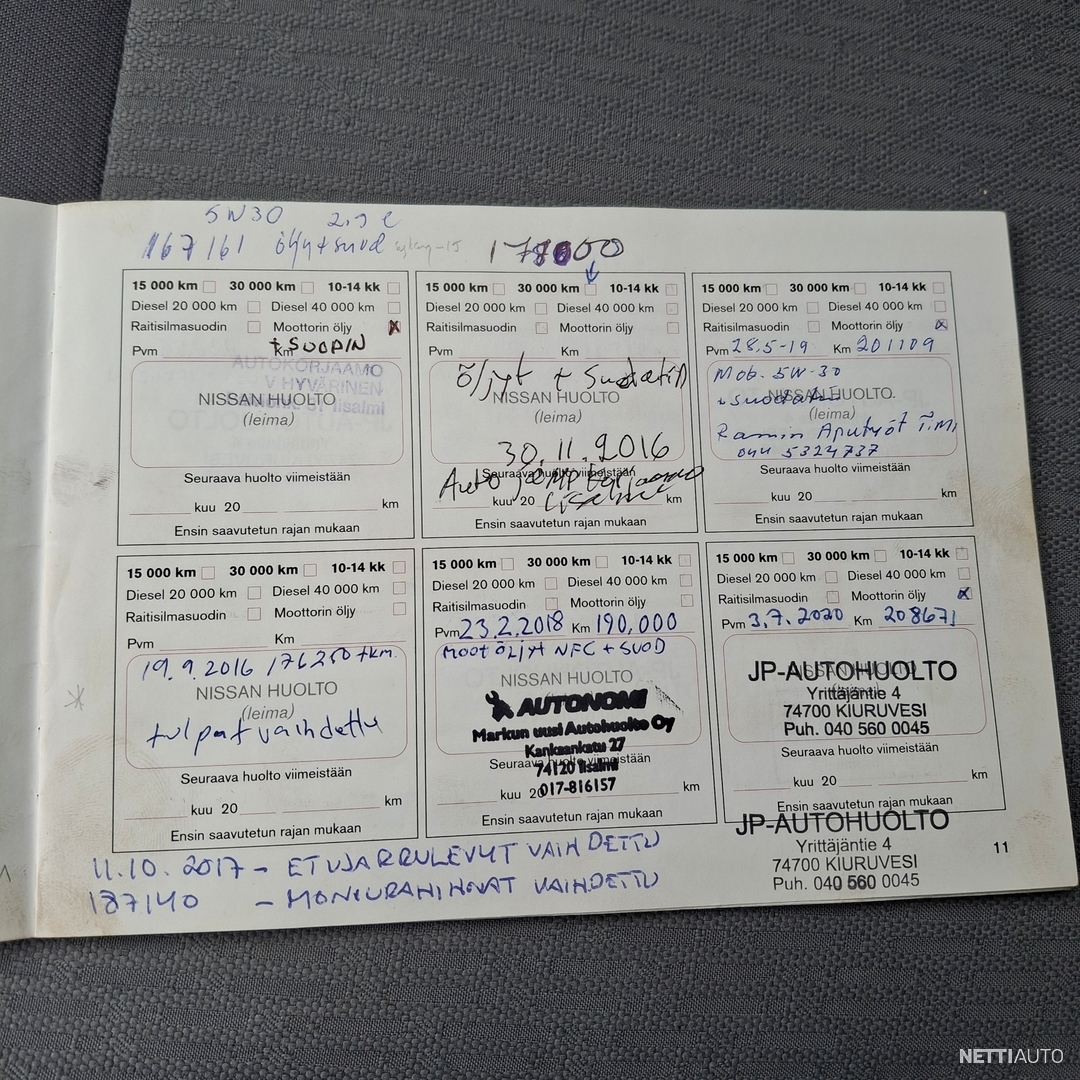 5W30 2.9 l
167161 öljy+suod syksy-15 178000
15 000 km 30 000 km 10-14 kk
Diesel 20 000 km Diesel 40 000 km
Raitisilmasuodin Moottorin öljy X
Pvm Km + SUODIN
AUTOKORJAAMO
V HYVÄRINEN
NISSAN HUOLTO
(leima)
Iisalmi
Seuraava huolto viimeistään
kuu 20 km
Ensin saavutetun rajan mukaan
15 000 km 30 000 km 10-14 kk
Diesel 20 000 km Diesel 40 000 km
Raitisilmasuodin Moottorin öljy
Pvm Km
öljyt + Suodatin
NISSAN HUOLTO
(leima)
30.11.2016
Seuraava huolto viimeistään
kuu 20 km
Ensin saavutetun rajan mukaan
15 000 km 30 000 km 10-14 kk
Diesel 20 000 km Diesel 40 000 km
Raitisilmasuodin Moottorin öljy X
Pvm 28.5-19 Km 201109
Mob. 5W-30
NISSAN HUOLTO
+ suodatin
(leima)
Ramin Aputyöt T:Mi
044 5324737
Seuraava huolto viimeistään
kuu 20 km
Ensin saavutetun rajan mukaan
15 000 km 30 000 km 10-14 kk
Diesel 20 000 km Diesel 40 000 km
Raitisilmasuodin Moottorin öljy
Pvm Km
19.9.2016 176250 tkm.
NISSAN HUOLTO
(leima)
tulpat vaihdettu
Seuraava huolto viimeistään
kuu 20 km
Ensin saavutetun rajan mukaan
15 000 km 30 000 km 10-14 kk
Diesel 20 000 km Diesel 40 000 km
Raitisilmasuodin Moottorin öljy
Pvm 23.2.2018 Km 190,000
MOOT ÖLJYT NFC + SUOD
NISSAN HUOLTO
AUTONOMI
Markun uusi Autohuolto Oy
Kankaankatu 27
Seuraava huolto viimeistään
74120 Iisalmi
kuu 20 km
017-816157
Ensin saavutetun rajan mukaan
15 000 km 30 000 km 10-14 kk
Diesel 20 000 km Diesel 40 000 km
Raitisilmasuodin Moottorin öljy X
Pvm 3.7.2020 Km 208671
NISSAN HUOLTO
JP-AUTOHUOLTO
Yrittäjäntie 4
74700 KIURUVESI
Puh. 040 560 0045
Seuraava huolto viimeistään
kuu 20 km
Ensin saavutetun rajan mukaan
JP-AUTOHUOLTO
Yrittäjäntie 4
74700 KIURUVESI
Puh. 040 560 0045
11.10.2017 - ETUJARRULEVYT VAIHDETTU
187140 - MONIURAHIHNAT VAIHDETTU
11
NETTIAUTO